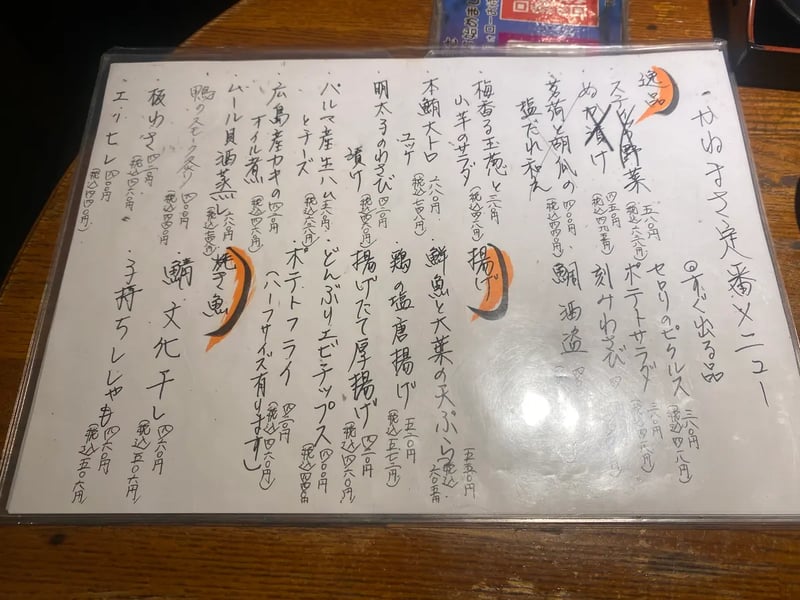 やねまさ定番メニュー
◎すぐ出る品
セロリのピクルス 三八〇円
(税込四一八円)
ポテトサラダ
刻みわさび
鯛酒盗
逸品
スティック野菜 五八〇円
(税込六三八円)
ぬか漬け 四五〇円
(税込四九五円)
茗荷と胡瓜の 四〇〇円
塩だれ和え (税込四四〇円)
梅香る玉葱と 三八〇円
小芋のサラダ (税込四一八円)
本鮪大トロ 六八〇円
ユッケ (税込七四八円)
明太子のわさび 四二〇円
漬け
パルマ産生ハム
とチーズ
広島産カキの
オイル煮
ムール貝酒蒸し
鴨のスモーク 四〇〇円
(税込四四〇円)
板わさ 四二〇円
(税込四六二円)
エシャレ 四〇〇円
(税込四四〇円)
揚げ
鮮魚と大葉の天ぷら 五五〇円
(税込六〇五円)
鶏の塩唐揚げ 五二〇円
(税込五七二円)
揚げたて厚揚げ 四二〇円
(税込四六二円)
どんぶりエビチップス 四〇〇円
(税込四四〇円)
ポテトフライ 四二〇円
(ハーフサイズ有ります) (税込四六二円)
焼き魚
鯖文化干し 四六〇円
(税込五〇六円)
子持ちししゃも 四六〇円
(税込五〇六円)